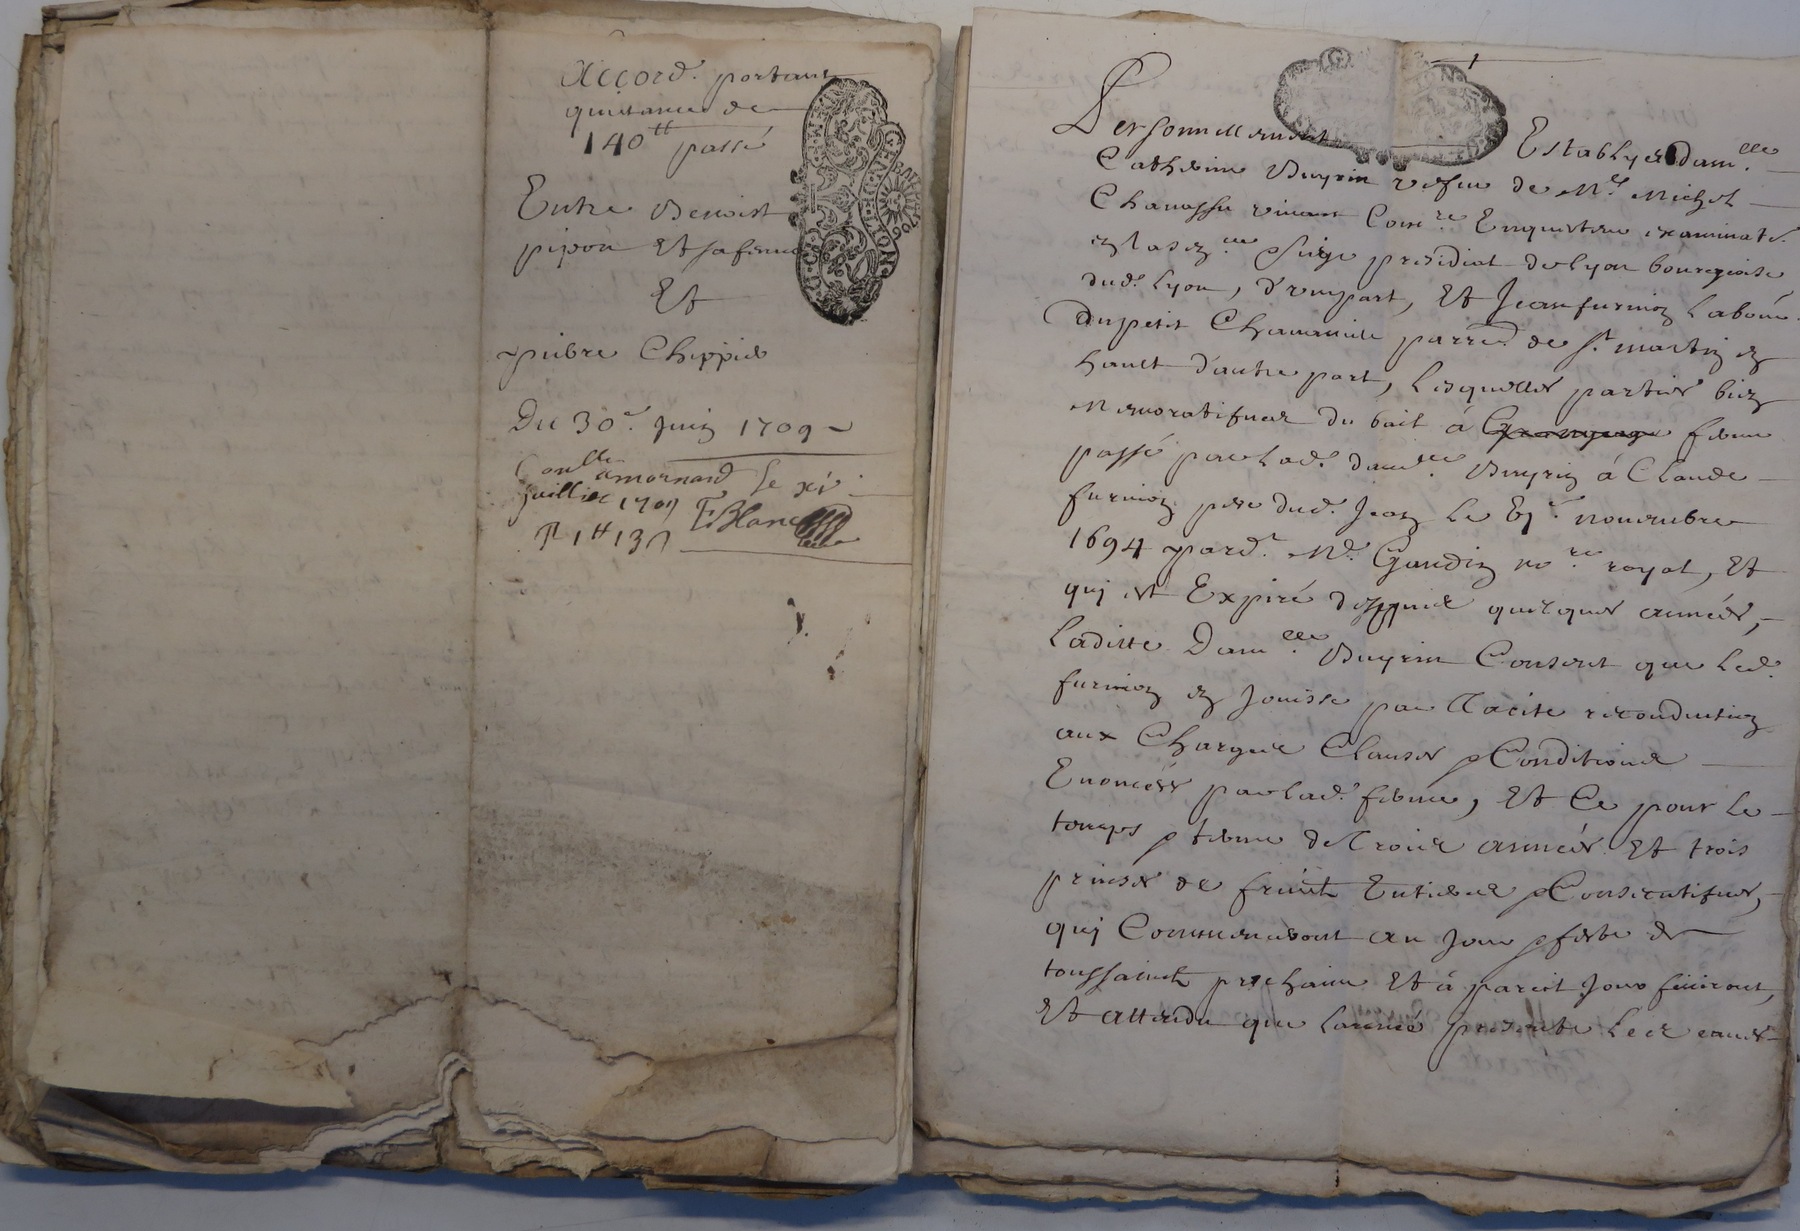 Accord. portant
quittance de
140ₜₜ passé
Entre Benoist
pipon Et sa femme
Et
pierre Chippie
Du 30e. Juin 1709
Coullé a mornand le xi
Juillie 1709
R 1tt 13s FBlanc
GENERALITE DE LYON
Personnellement Establyes dam.elle
Catherine Buyrin vefue de Mr. Michel
Chanasse viuant Con.re Enquesteur examinate.
en la sen.ee Siege presidial de Lyon bourgeoise
dud. Lyon, d'vne part, Et Jean furnion labour.
du petit Chauanne parre. de St. martin en
hault d'autre part, lesquelles parties bien
memoratifues du bail à ferme
passé par lad. dam.elle Buyrin à Claude
furnion pere dud. Jean le 6e. nouembre
1694 pard. Me. Gaudin no.re royal, Et
qui est Expiré despuis quelques années,
laditte Dam.elle Buyrin Consent que led.
furnion en Jouisse par Tacite reconduction
aux Charges Clauses & Conditions
Enoncées par lad. ferme, Et Ce pour le
temps & terme de Trois années Et trois
prises de fruits Entieres & Consecutifues,
qui Commenceront au Jour & feste de
toussaincts prochaine Et à pareil Jour finiront,
Et attendu que l'année presente les